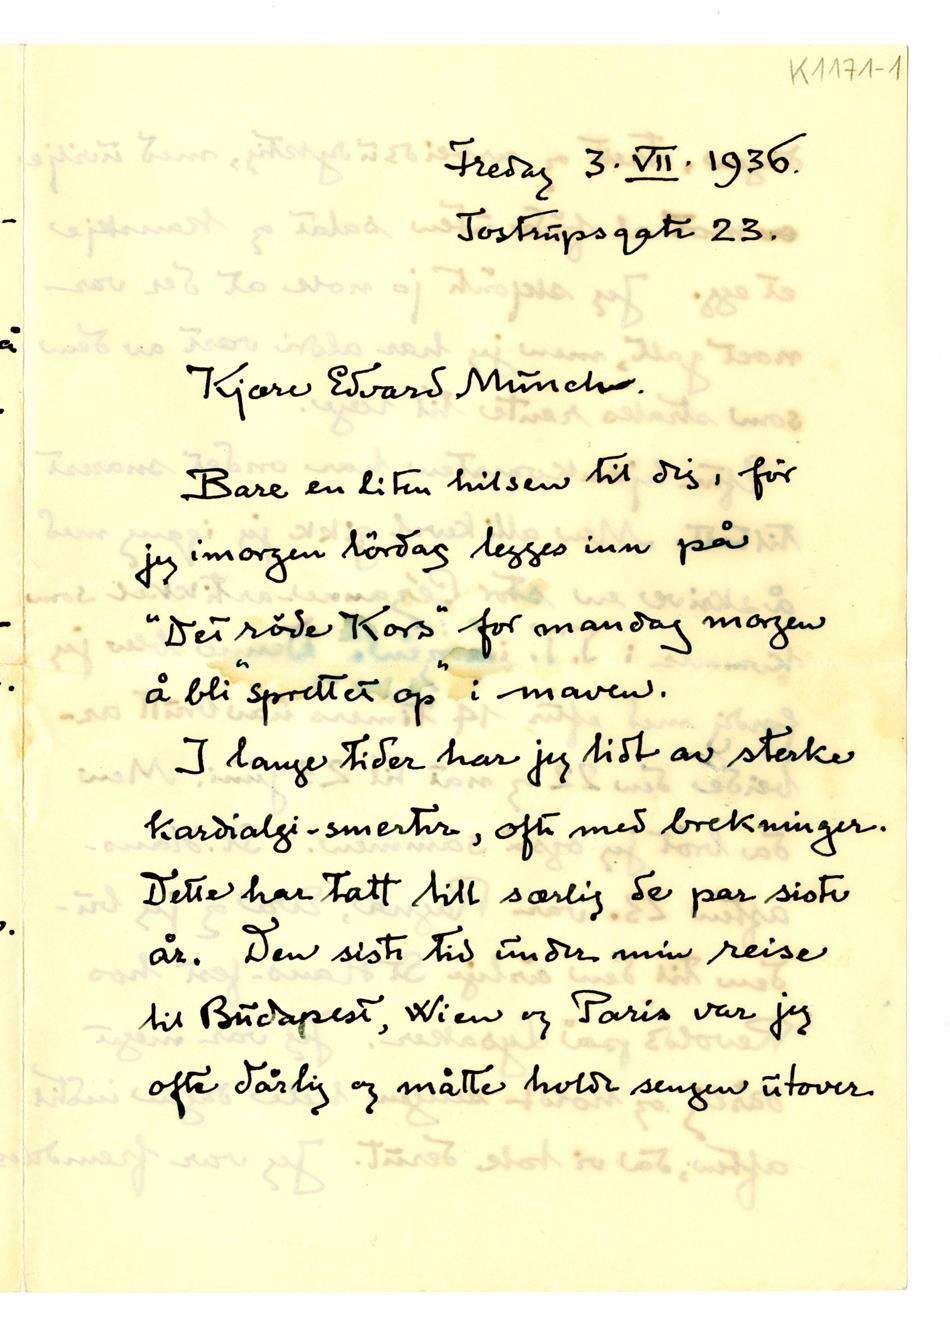 K1171-1
Fredag 3. VII. 1936.
Tostrupsgate 23.
Kjære Edvard Munch.
Bare en liten hilsen til dig, før
jeg imorgen lördag legges inn på
"Det røde Kors" for mandag morgen
å bli "sprettet op" i maven.
I lange tider har jeg lidt av sterke
kardialgi-smerter, ofte med brekninger.
Dette har tatt till særlig de par siste
år. Den siste tid under min reise
til Budapest, Wien og Paris var jeg
ofte dårlig og måtte holde sengen utover